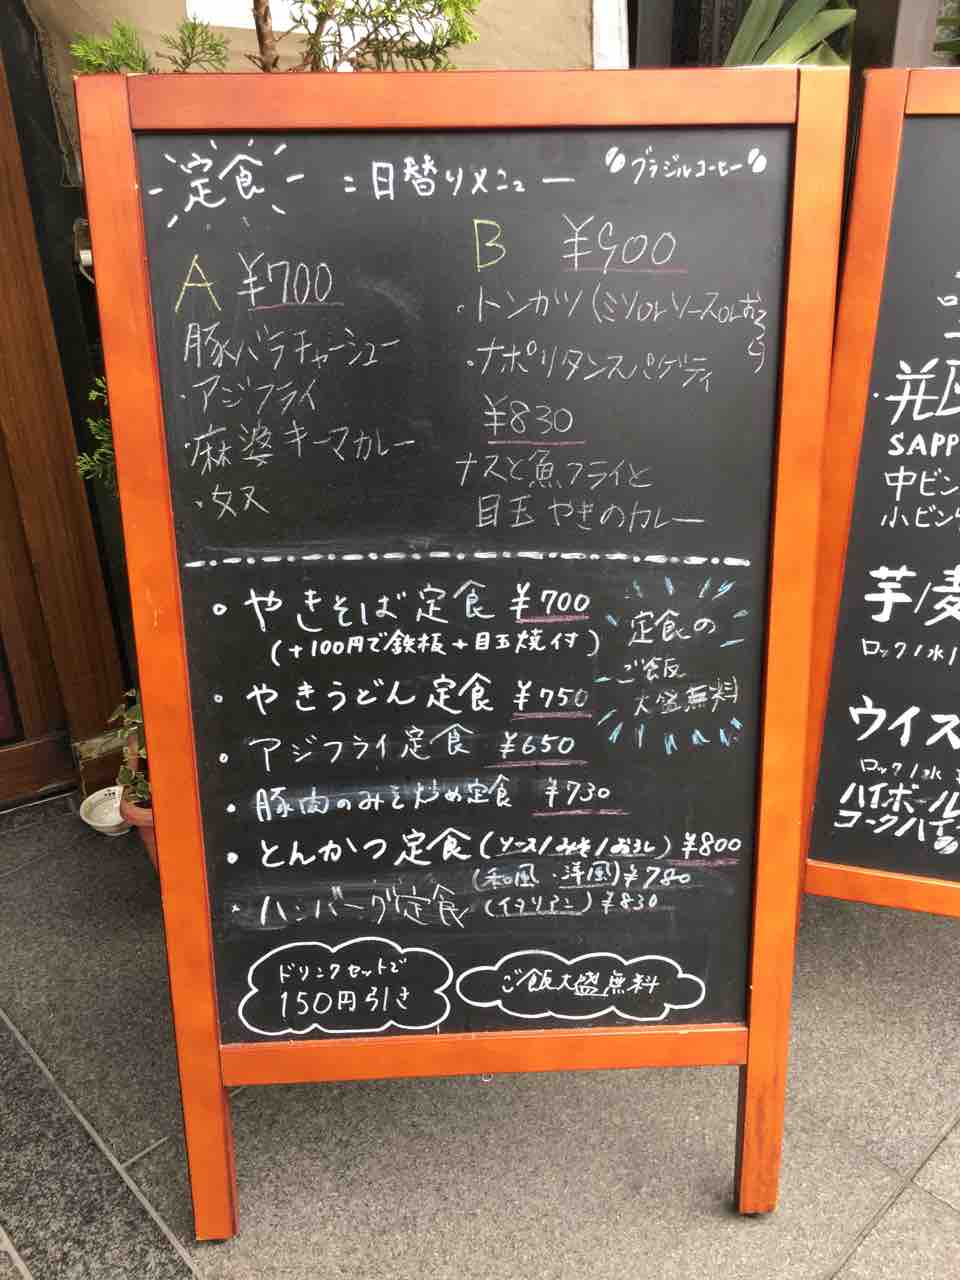 定食
=日替りメニュー
ブラジルコーヒー
A ¥700
豚バラチャーシュー
・アジフライ
・麻婆キーマカレー
B ¥900
・トンカツ(ミソorソースorおろし)
・ナポリタンスパゲティ
¥830
ナスと魚フライと
目玉やきのカレー
・やきそば定食 ¥700
(+100円で鉄板+目玉焼付)
・やきうどん定食 ¥750
・アジフライ定食 ¥650
・豚肉のみそ炒め定食 ¥730
・とんかつ定食(ソース/みそ/おろし) ¥800
(和風・洋風)¥780
・ハンバーグ定食 (イタリアン) ¥830
定食の
ご飯
大盛無料
ドリンクセットで
150円引き
ご飯大盛無料
SAPP
中ビン
小ビン
芋/麦
ロック/水/
ウイス
ロック/水
ハイボール
コークハイ